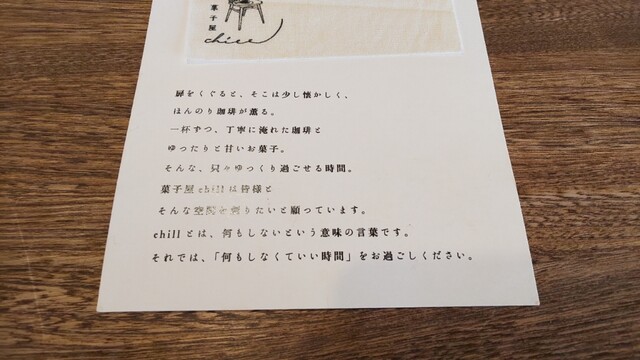 菓子屋
chill
扉をくぐると、そこは少し懐かしく、
ほんのり珈琲が薫る。
一杯ずつ、丁寧に淹れた珈琲と
ゆったりと甘いお菓子。
そんな、只々ゆっくり過ごせる時間。
菓子屋chillは皆様と
そんな空間を創りたいと願っています。
chillとは、何もしないという意味の言葉です。
それでは、「何もしなくていい時間」をお過ごしください。